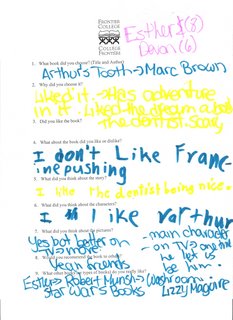 FRONTIER
COLLEGE
COLLÈGE
FRONTIÈRE
Esther (8)
Devan (6)
1. What book did you choose? (Title and Author)
Arthur's Tooth → Marc Brown
2. Why did you choose it?
Liked it. → Has adventure
in it. Liked the dream about
3. Did you like the book?
the dentist. Scary
4. What about the book did you like or dislike?
I don't Like Franc-
ine pushing
5. What did you think about the story?
I like the dentist being nice.
6. What did you think about the characters?
I like arthur
7. What did you think about the pictures?
Yes but better on
TV → more!
- main character
- on TV → one that
he let us
be him.
8. Would you recommend the book to
Yeah friends
9. What other books (or types of books) do you really like?
Esther → Robert Munsch → Washroom.
Star Wars Books
Lizzy Maguire